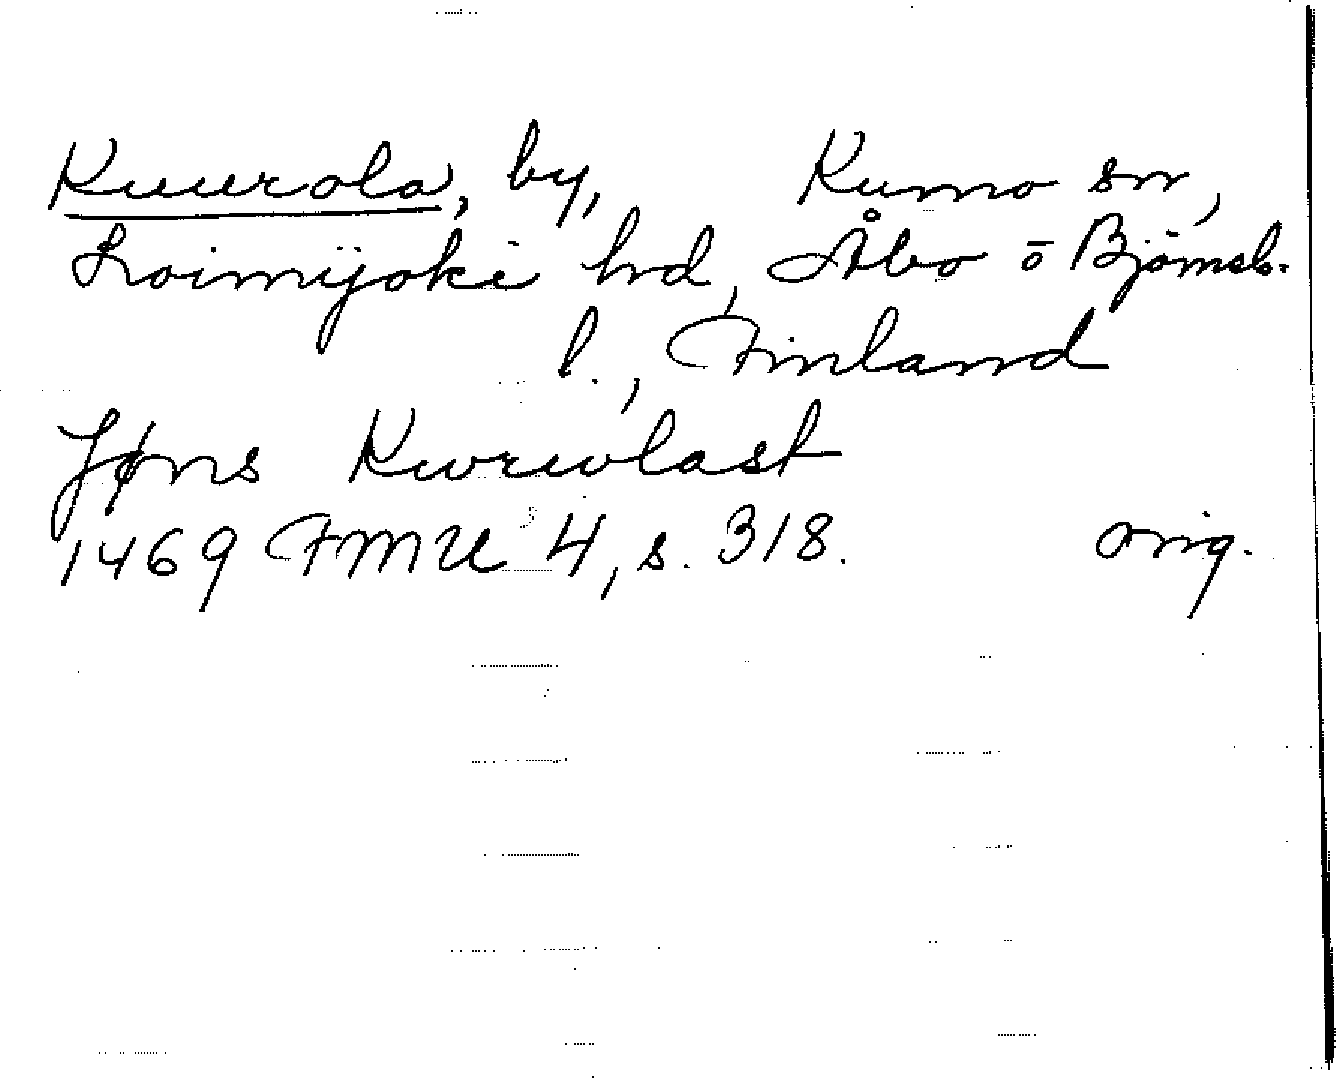 Kuurola, by, Kumo sn,
Loimijoki hrd, Åbo o Björneb.
l., Finland
Jøns Kwrwlast
1469 FMU 4, s. 318. orig.